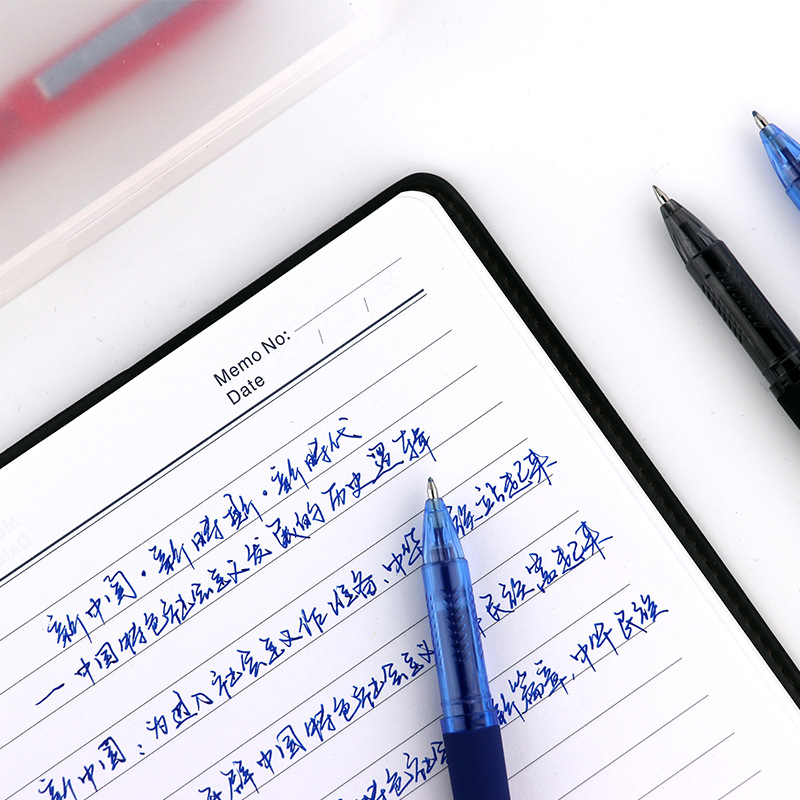 Memo No:
Date / /
新中国·新时期·新时代
一中国特色社会主义发展的历史逻辑
新中国：为进入社会主义作准备，中华民族站起来
开辟中国特色社会主义 民族富起来
特色社会主 新篇章，中华民族